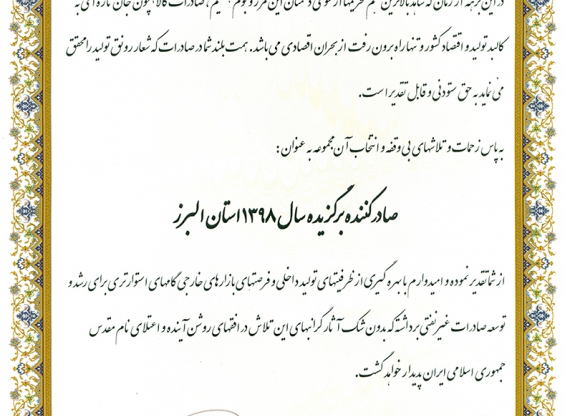 در این برهه از زمان که شاهد بالاترین تحریمها از سوی دشمنان این مرز و بوم هستیم، صادرات کالا چون جان تازه ای به
کالبد تولید و اقتصاد کشور و تنها راه برون رفت از بحران اقتصادی می باشد. همت بلند شما در صادرات که شعار رونق تولید را محقق
می نماید به حق ستودنی و قابل تقدیر است.
به پاس زحمات و تلاشهای بی وقفه و انتخاب آن مجموعه به عنوان:
صادرکننده برگزیده سال ۱۳۹۸ استان البرز
از شما تقدیر نموده و امیدوارم با بهره گیری از ظرفیتهای تولید داخلی و فرصتهای بازارهای خارجی گامهای استوارتری برای رشد و
توسعه صادرات غیرنفتی برداشته که بدون شک آثار گرانبهای این تلاش در افقهای روشن آینده و اعتلای نام مقدس
جمهوری اسلامی ایران پدیدار خواهد گشت.